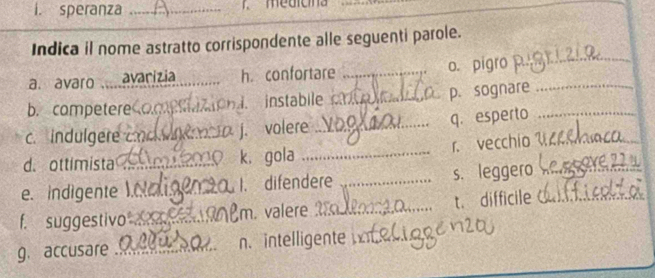 i. speranza A r. medicina
Indica il nome astratto corrispondente alle seguenti parole.
a. avaro avarizia h. confortare o. pigro pigrizia
b. competere competizione i. instabile p. sognare
c. indulgere indulgenza j. volere voglia q. esperto
d. ottimista ottimismo k. gola r. vecchio vecchiaca
e. indigente Indigenza l. difendere s. leggero leggerezza
f. suggestivo m. valere t. difficile difficoltà
g. accusare accusa n. intelligente inteligenza